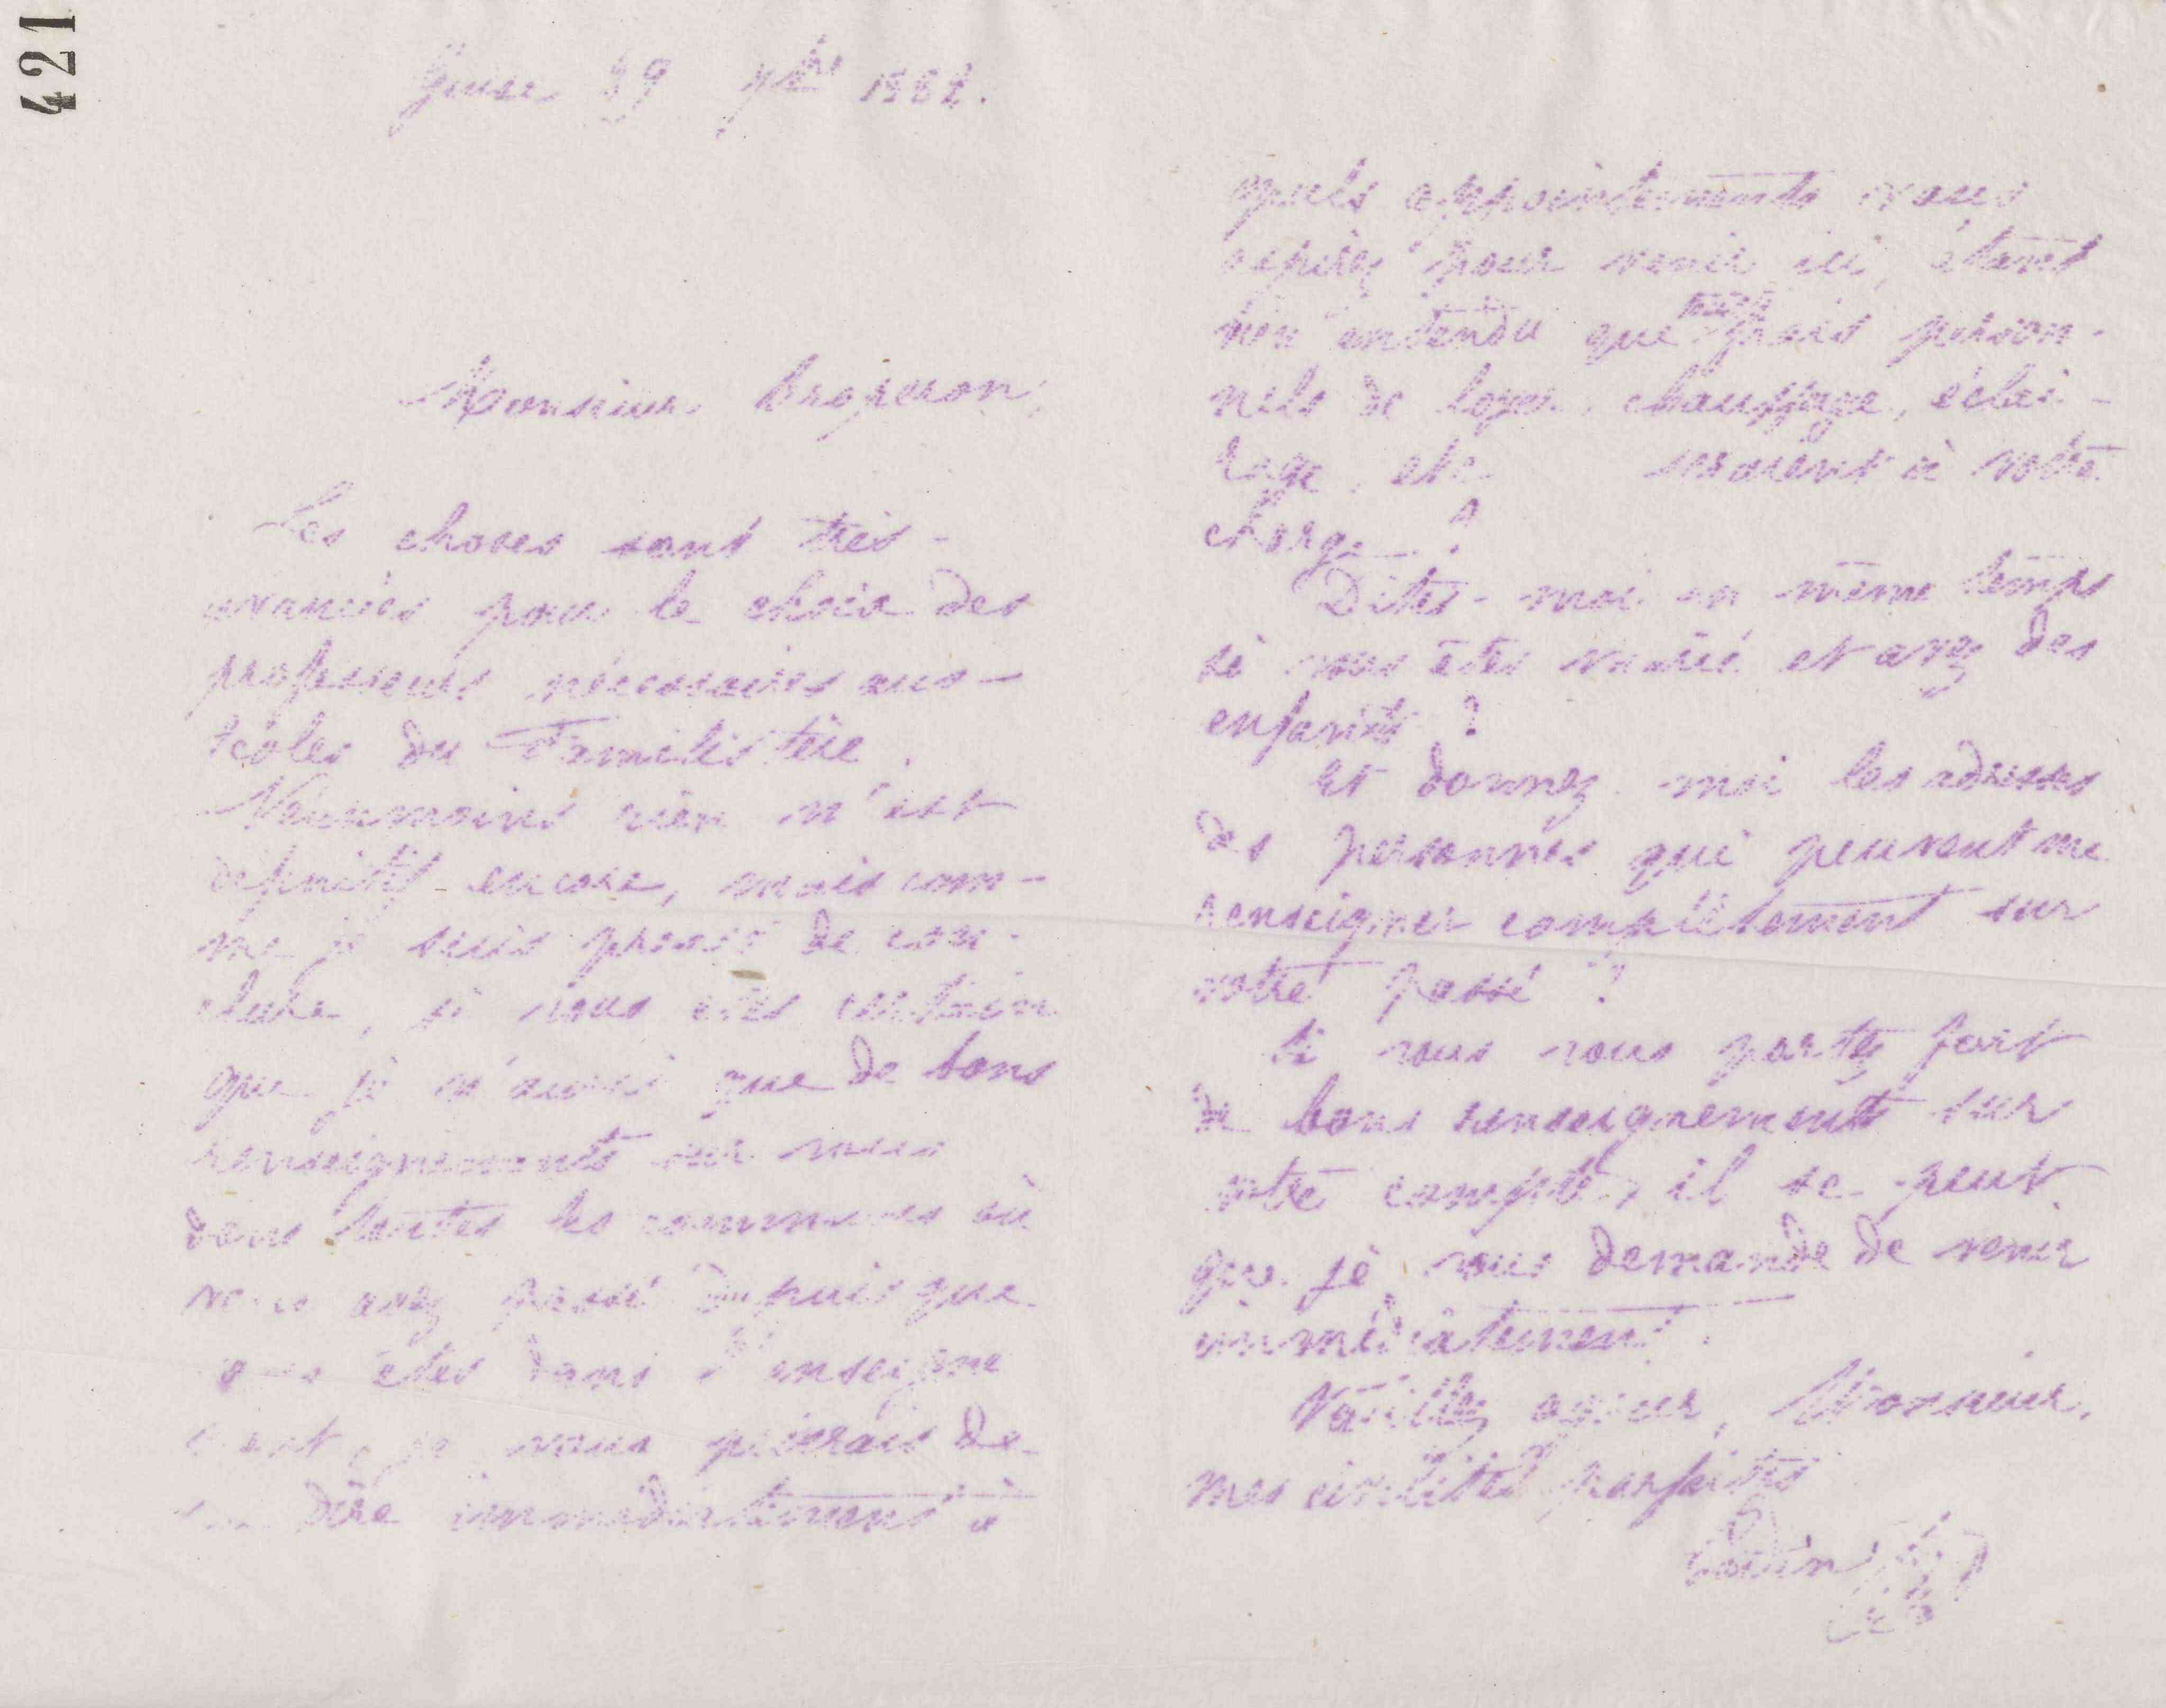 421
Guise 29 7bre 1882.
Monsieur
Les choses sont très-
avancées pour le choix des
professeurs nécessaires aux
écoles du Familistère.
Néanmoins rien n'est
définitif encore, mais com-
me je suis pressé de con-
clure, si vous êtes certain
que je n'aurai que de bons
renseignements sur vous
dans toutes les communes où
vous avez passé depuis que
vous êtes dans l'enseigne
ment, je vous prierais de
me dire immédiatement à
quels appointements vous
pour venir ici, étant
bien entendu que frais person-
nels de loyer, chauffage, éclai-
rage, etc. seraient à votre
charge ?
Dites-moi en même temps
si vous êtes marié et avez des
enfants ?
Et donnez-moi les adresses
des personnes qui peuvent me
renseigner complètement sur
votre passé ?
Si vous vous portez fort
de bons renseignements sur
votre compte, il se peut
que je vous demande de venir
immédiatement.
Veuillez agréer, Monsieur,
mes civilités parfaites
Godin